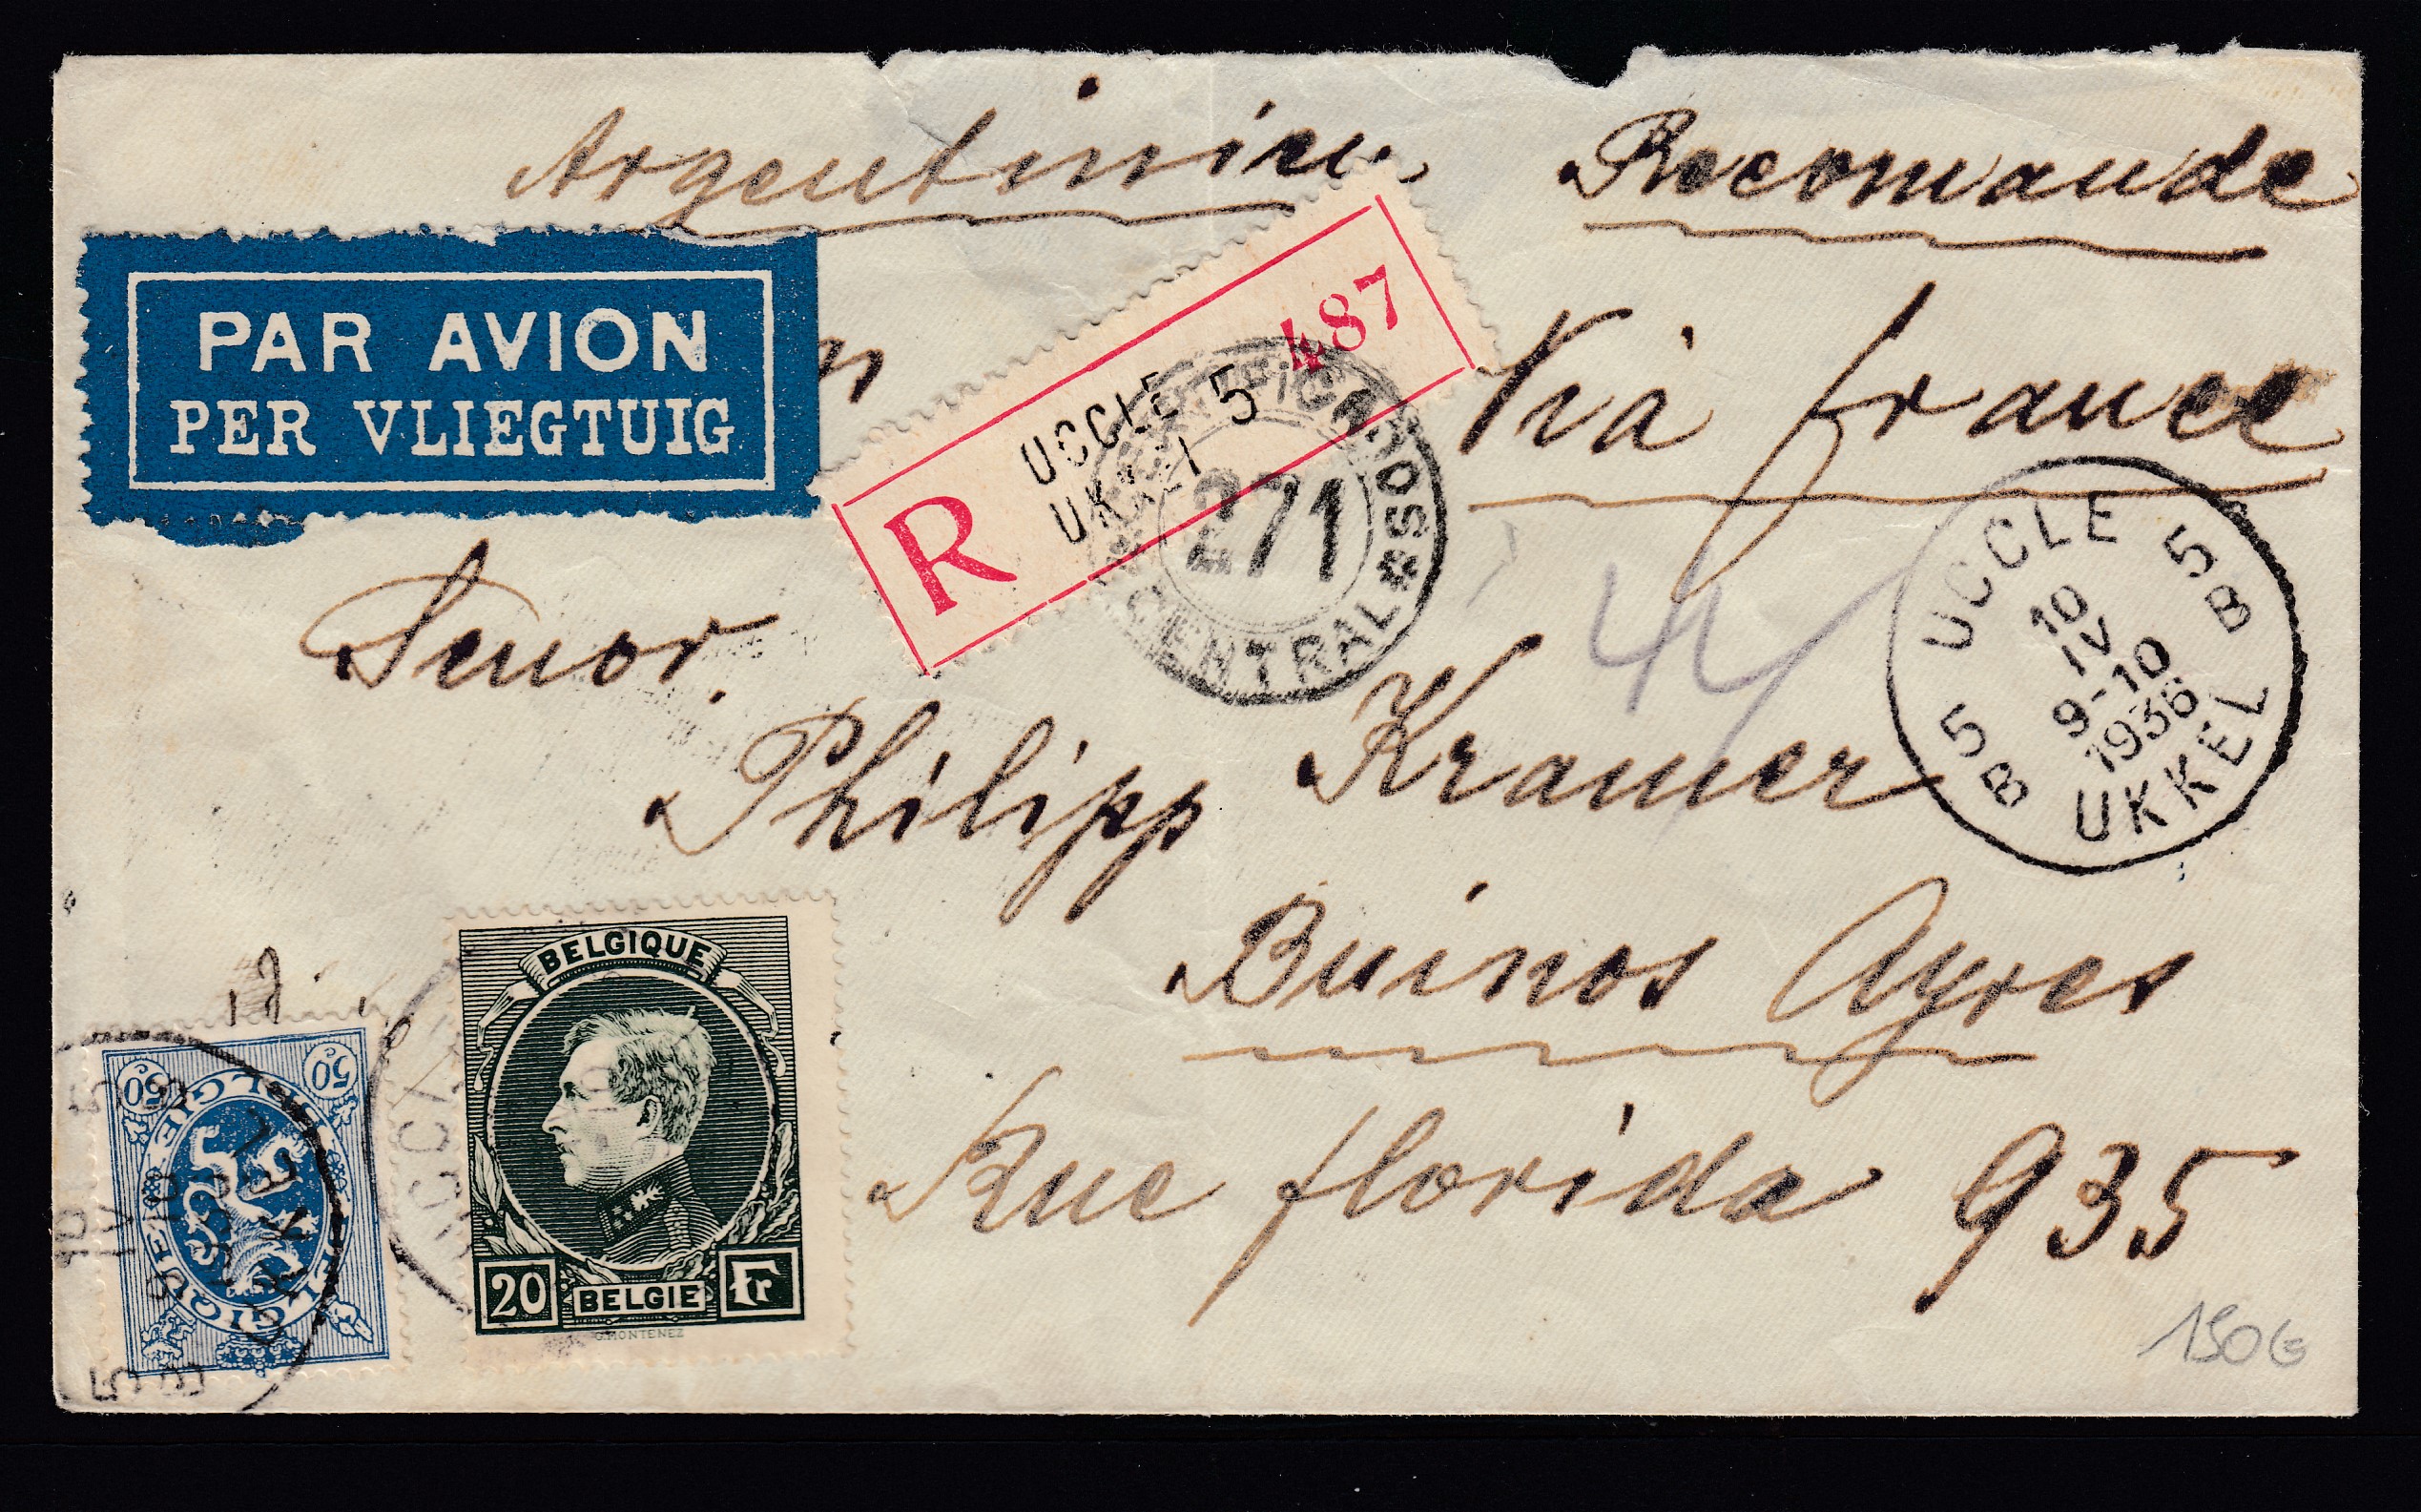 Argentinien
Recomande
PAR AVION
PER VLIEGTUIG
R
UCCLE 5
UKKEL
487
271
CENTRAL
Via france
UCCLE 5
B
10
IV
9-10
1936
5
B
UKKEL
44
Senor.
Philipp Kramer
Buinos Ayres
Rue florida 935
BELGIQUE
20
BELGIE
Fr
G.MONTENEZ
50c
50c
BELGIE
BELGIQUE
150€